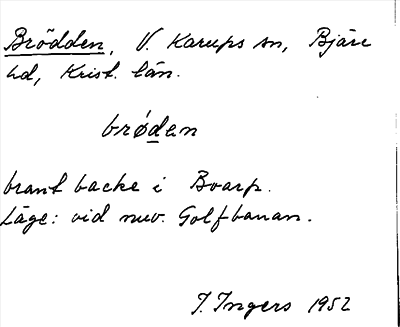 Brödden, V. Karups sn, Bjäre
hd, Krist. län.
brøden
brant backe i Boarp.
Läge: vid nuv. Golfbanan.
I. Ingers 1952